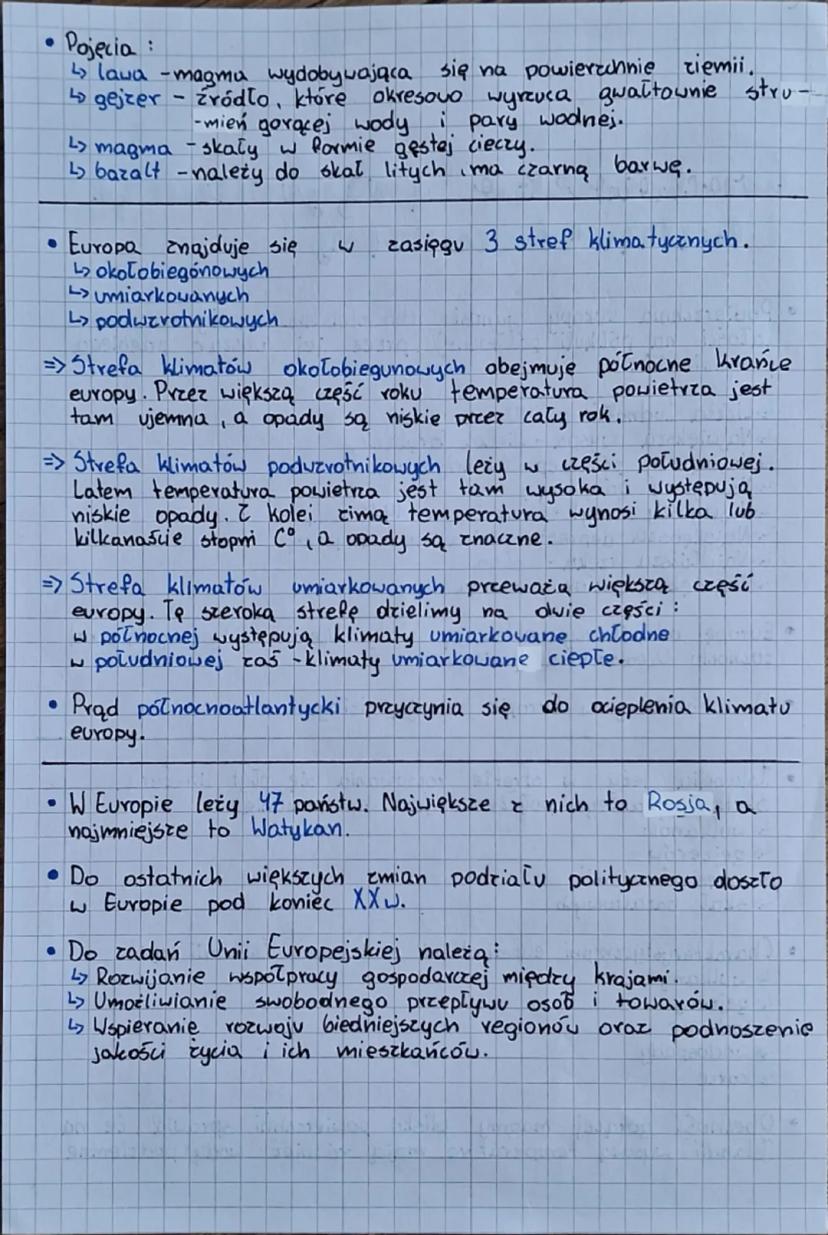 • Pojęcia :
↳ lawa - magma wydobywająca się na powierzchnie ziemii.
↳ gejzer - źródło, które okresowo wyrzuca gwałtownie stru-
-mień gorącej wody i pary wodnej.
↳ magma - skały w formie gęstej cieczy.
↳ bazalt - należy do skał litych, ma czarną barwę.
• Europa znajduje się w zasięgu 3 stref klimatycznych.
↳ okołobiegónowych
↳ umiarkowanych
↳ podwzrotnikowych
=> Strefa klimatów okołobiegunowych obejmuje północne krańce
europy. Przez większą część roku temperatura powietrza jest
tam ujemna, a opady są niskie przez cały rok.
=> Strefa klimatów podwzrotnikowych leży w części południowej.
Latem temperatura powietrza jest tam wysoka i występują
niskie opady. Z kolei zimą temperatura wynosi kilka lub
kilkanaście stopni C°, a opady są znaczne.
=> Strefa klimatów umiarkowanych przeważa większą część
europy. Tę szeroką strefę dzielimy na dwie części :
w północnej występują klimaty umiarkowane chłodne
w południowej zaś - klimaty umiarkowane ciepłe.
• Prąd północnoatlantycki przyczynia się do ocieplenia klimatu
europy.
• W Europie leży 47 państw. Największe z nich to Rosja, a
najmniejsze to Watykan.
• Do ostatnich większych zmian podziału politycznego doszło
w Europie pod koniec XXw.
• Do zadań Unii Europejskiej należą :
↳ Rozwijanie współpracy gospodarczej między krajami.
↳ Umożliwianie swobodnego przepływu osób i towarów.
↳ Wspieranie rozwoju biedniejszych regionów oraz podnoszenie
jakości życia i ich mieszkańców.